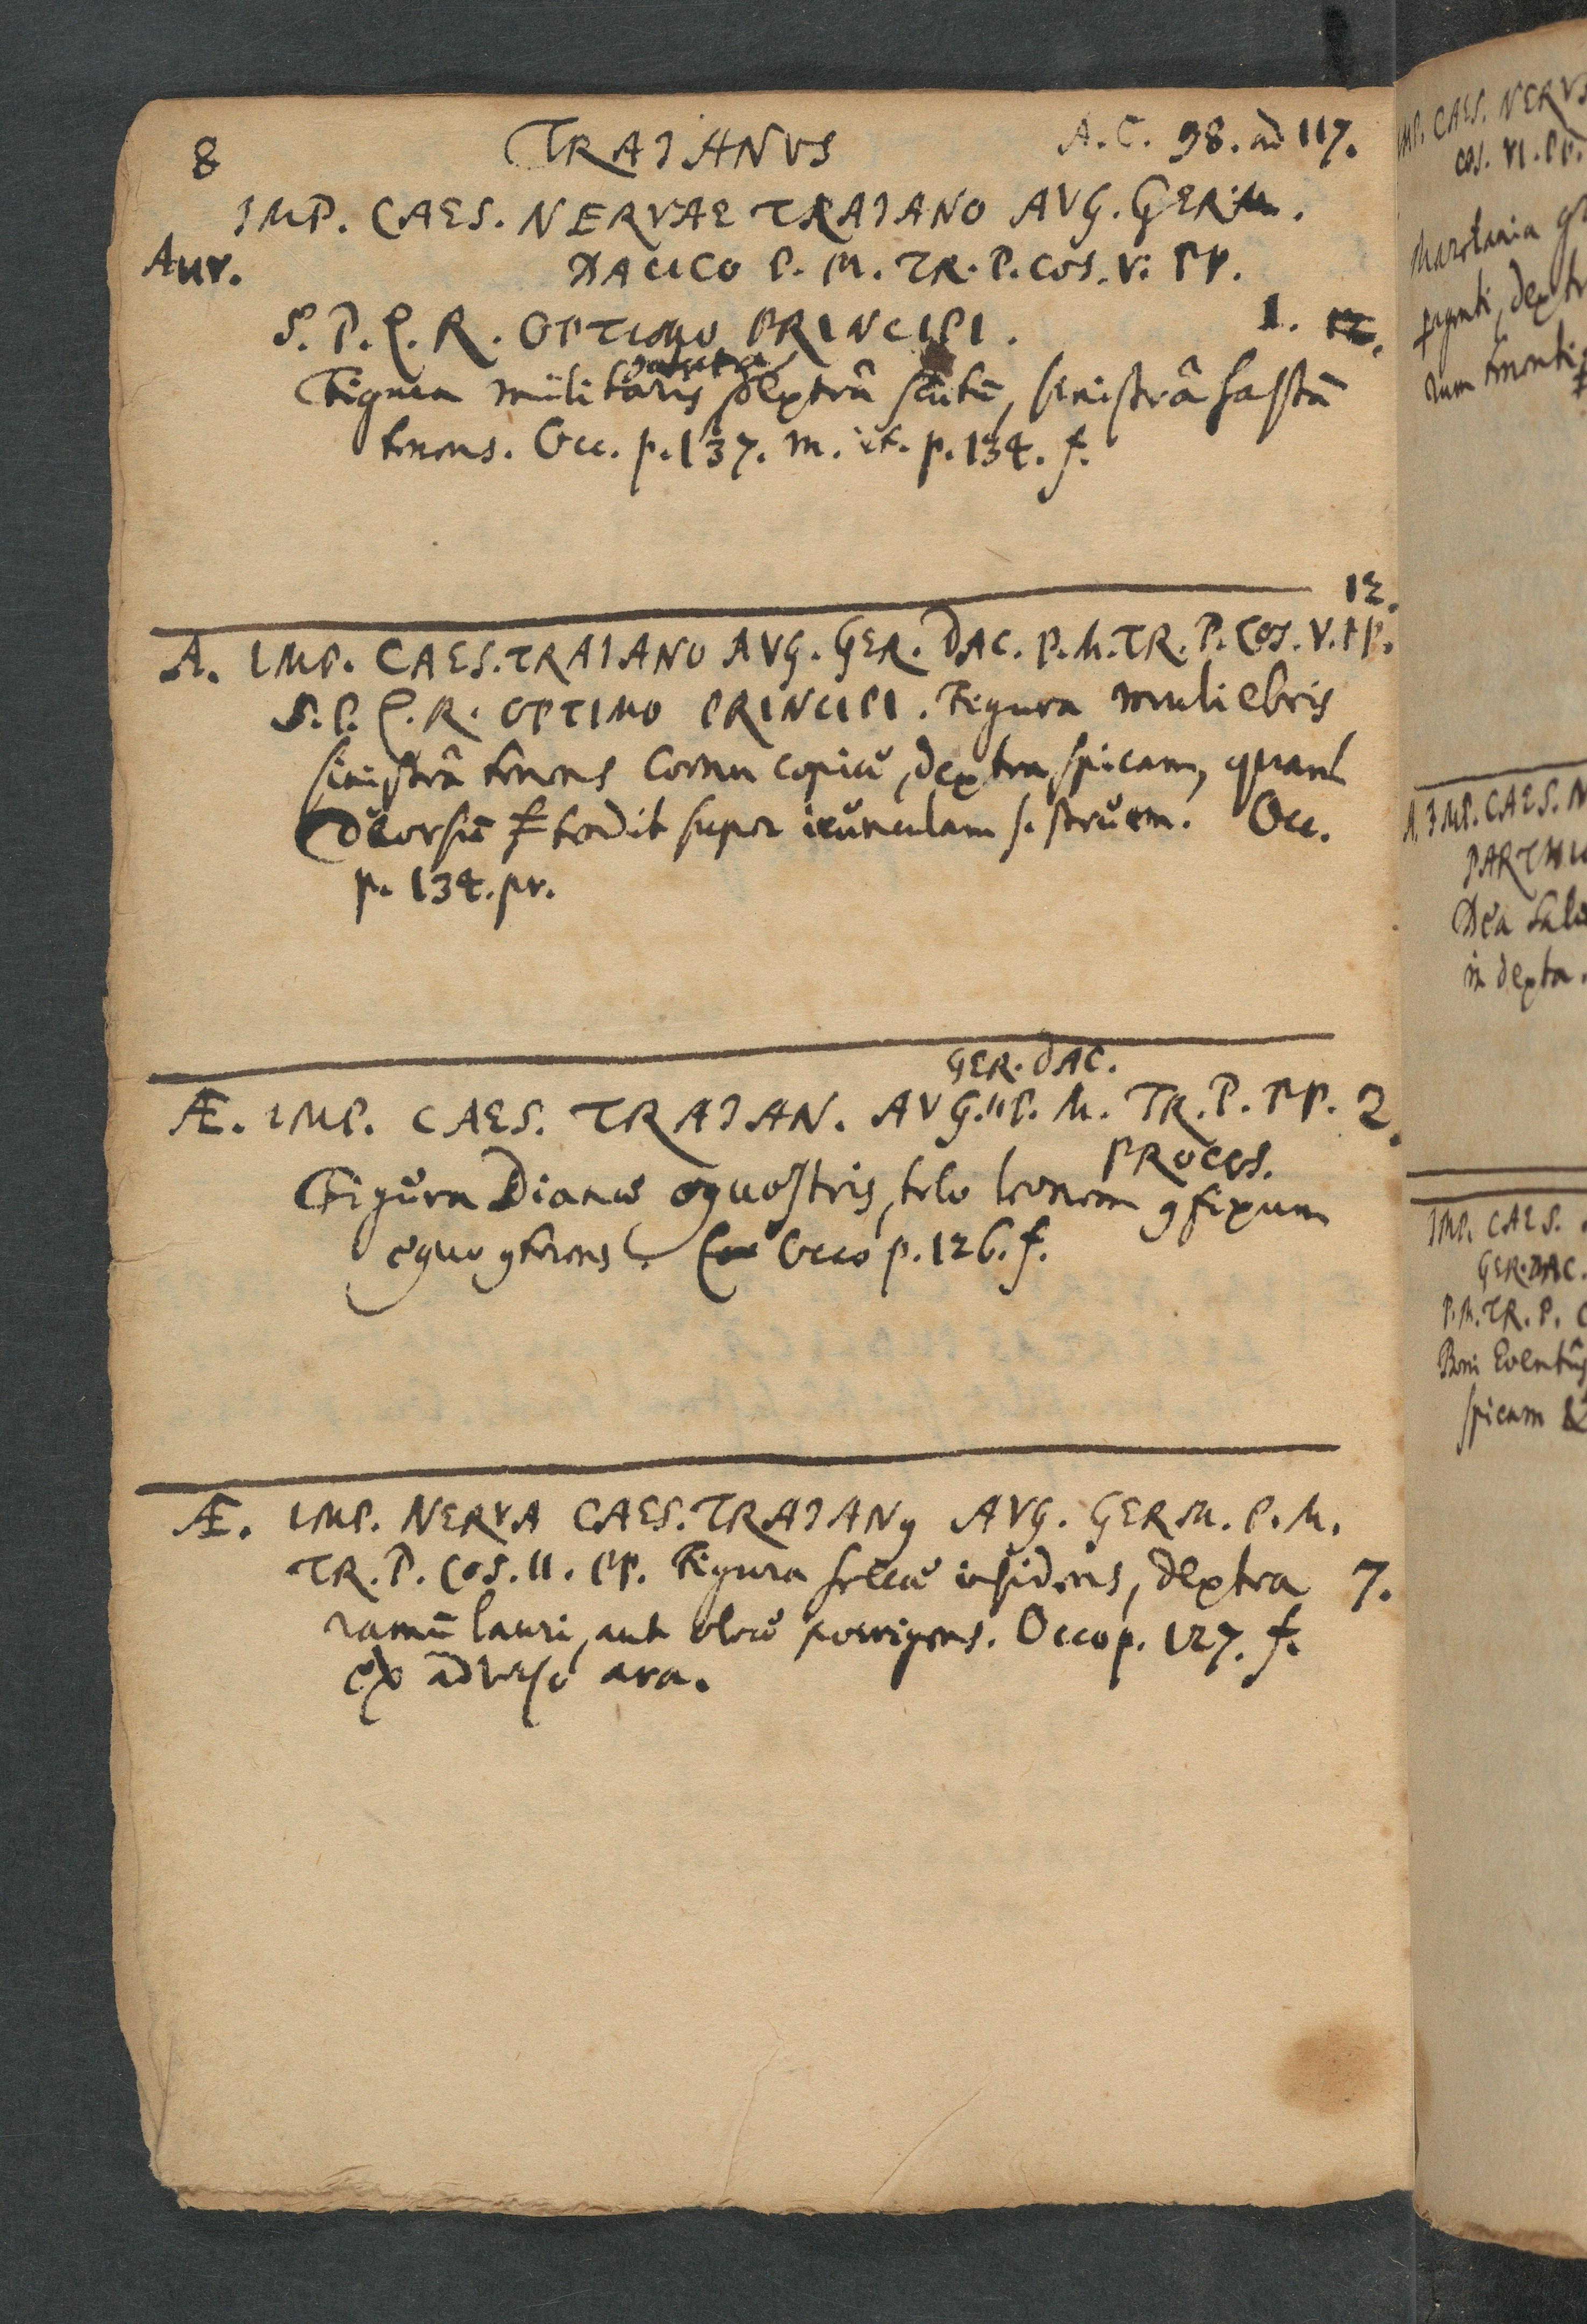 8 TRAJANVS A.C. 98. ad 117.
IMP. CAES. NERVAE TRAIANO AVG. GERM.
Aur. DACICO P. M. TR. P. COS. V. PP.
S. P. Q. R. OPTIMO PRINCIPI. 1. 12.
Figura militaris dextrâ scutū, sinistrâ hastā
tenens. Occ. p. 137. m. it. p. 134. f.
12.
A. IMP. CAES. TRAIANO AVG. GER. DAC. P. M. TR. P. COS. V. PP.
S. P. Q. R. OPTIMO PRINCIPI. Figura muliebris
sinistrâ tenens cornu copiæ, dextra spicam, quam
deorsū tendit super icunculam s. struem. Occ.
p. 134. pr.
GER. DAC.
Æ. IMP. CAES. TRAJAN. AVG. P. M. TR. P. PP. 2.
PROCOS.
Figura Dianæ equestris, telo leonem 9fixum
equo 9terens. Occo p. 126. f.
Æ. IMP. NERVA CAES. TRAJAN9 AVG. GERM. P. M.
TR. P. COS. II. PP. Figura sellæ insidens, dextra 7.
ramū lauri, aut oleæ porrigens. Occo p. 127. f.
ex adverso ara.
IMP. CAES. NERVA
COS. VI. PP.
dextr
A. IMP. CAES. N
PARTHIC
Dea Salu
in dextra.
IMP. CAES.
GER. DAC.
P. M. TR. P. C
Boni Eventûs
spicam &